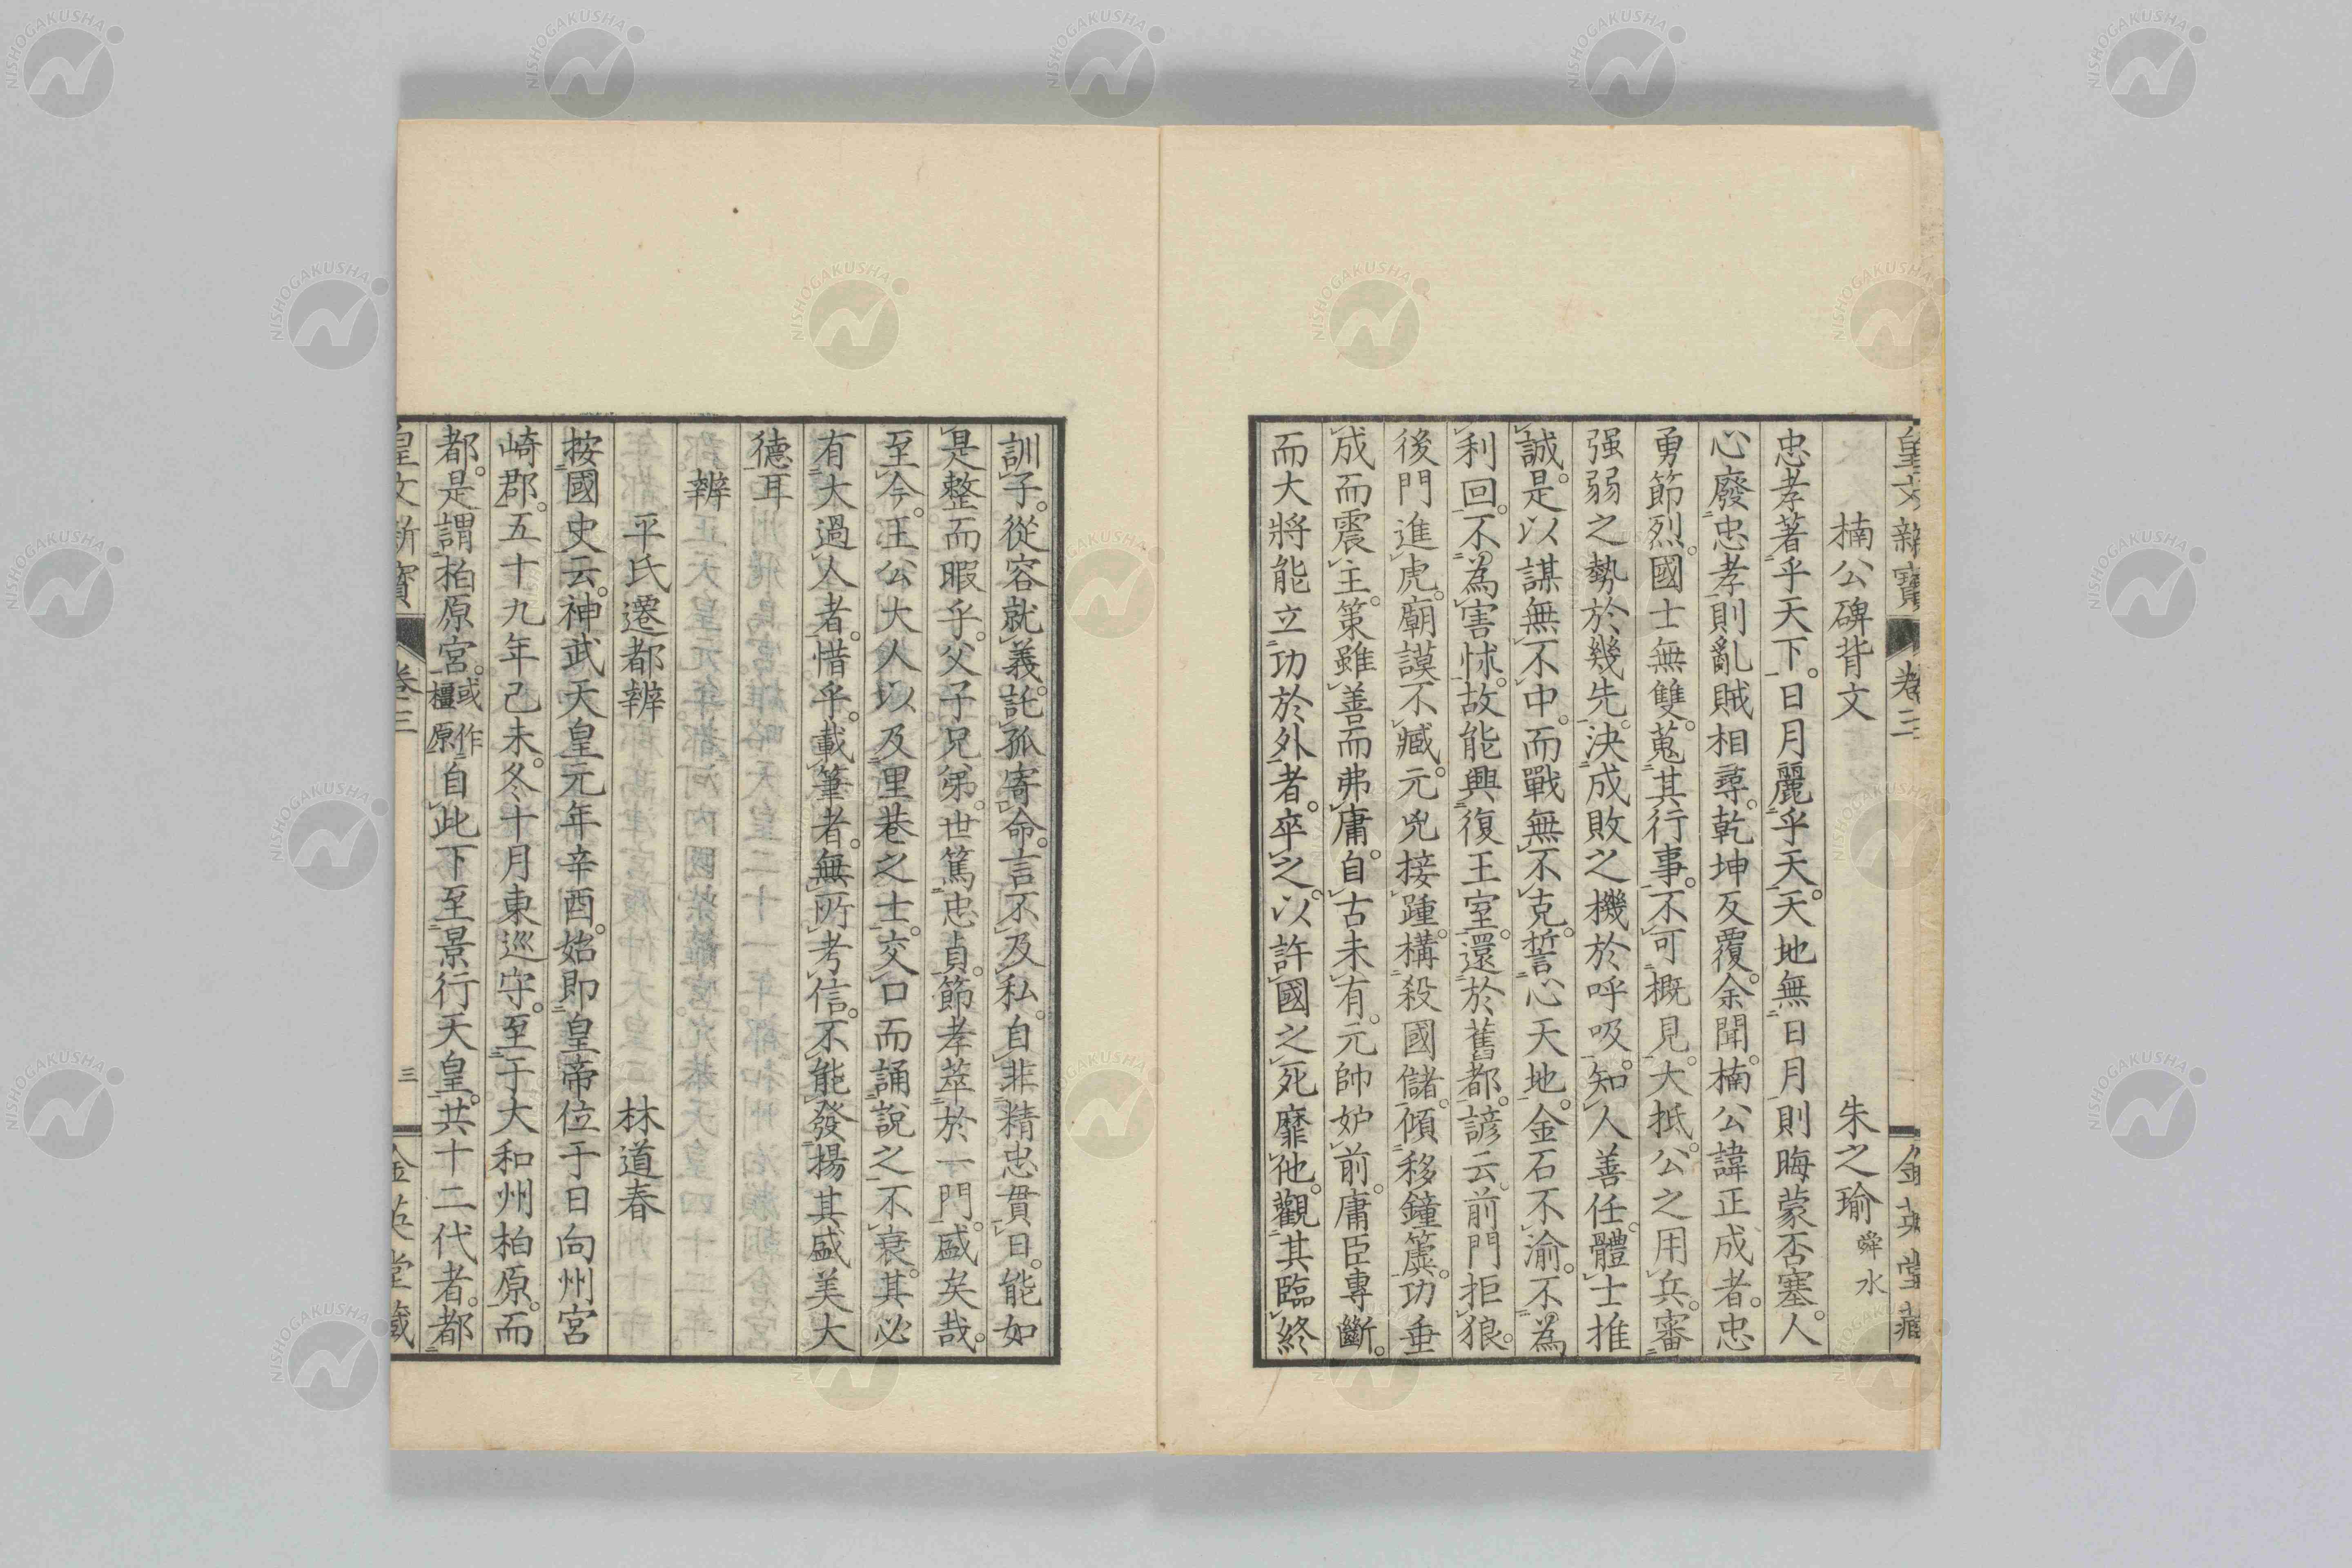 皇文新寶 卷三 金英堂藏
楠公碑背文 朱之瑜舜水
忠孝著乎天下。日月麗乎天。天地無日月則晦蒙否塞。人
心廢忠孝則亂賊相尋。乾坤反覆。余聞。楠公諱正成者。忠
勇節烈。國士無雙。蒐其行事。不可概見。大抵公之用兵。審
强弱之勢於幾先。決成敗之機於呼吸。知人善任。體士推
誠。是以謀無不中。而戰無不克。誓心天地。金石不渝。不為
利回。不為害怵。故能興復王室。還於舊都。諺云。前門拒狼。
後門進虎。廟謨不臧。元兇接踵。構殺國儲。傾移鐘簴。功垂
成而震主。策雖善而弗庸。自古未有。元帥妒前。庸臣專斷。
而大將能立功於外者。卒之。以許國之死靡他。觀其臨終
訓子。從容就義。託孤寄命。言不及私。自非精忠貫日。能如
是整而暇乎。父子兄弟。世篤忠貞。節孝萃於一門。盛矣哉。
至今。王公大人以及里巷之士。交口而誦說之不衰。其必
有大過人者。惜乎。載筆者。無所考信。不能發揚其盛美大
德耳
辨
平氏遷都辨 林道春
按國史云。神武天皇元年辛酉。始即皇帝位于日向州宮
崎郡。五十九年己未。冬十月東巡守。至于大和州柏原。而
都。是謂柏原宮。或作橿原自此下至景行天皇。共十二代者。都
皇文新寶 卷三 三 金英堂藏
NISHOGAKUSHA